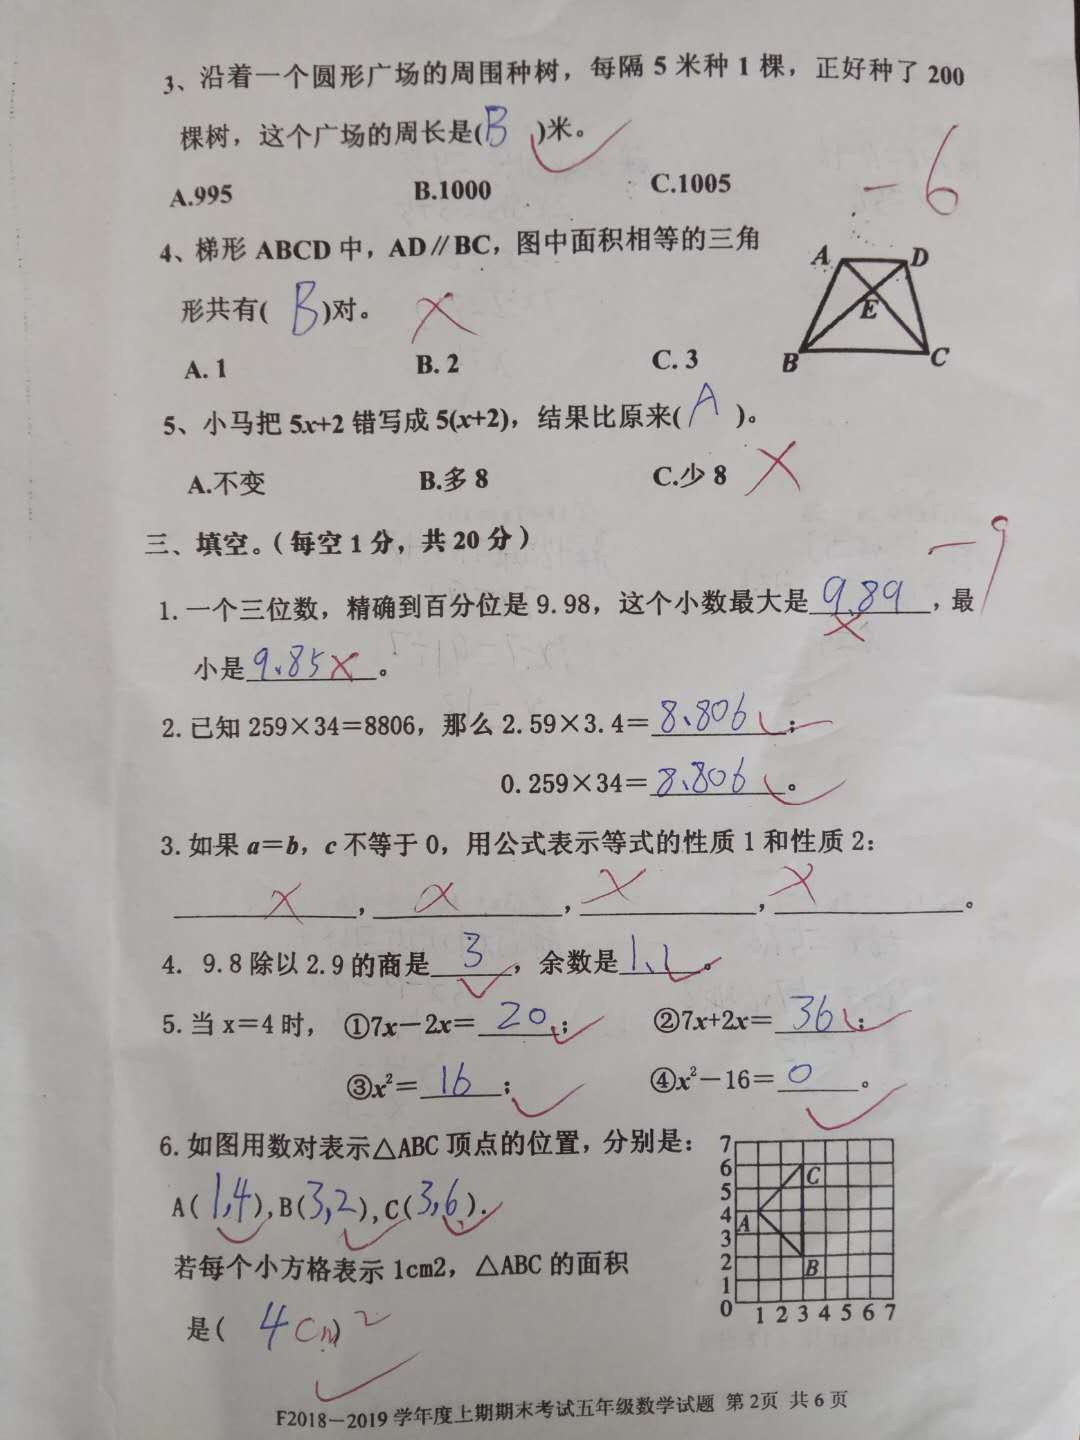 3、沿着一个圆形广场的周围种树，每隔 5 米种 1 棵，正好种了 200
棵树，这个广场的周长是(B)米。
-6
A.995 B.1000 C.1005
4、梯形 ABCD 中，AD∥BC，图中面积相等的三角
形共有( B )对。
A. 1 B. 2 C. 3
A D
E
B C
5、小马把 5x+2 错写成 5(x+2)，结果比原来( A )。
A.不变 B.多 8 C.少 8
三、填空。（每空 1 分，共 20 分）
-9
1.一个三位数，精确到百分位是 9.98，这个小数最大是9.89，最
小是9.85。
2.已知 259×34＝8806，那么 2.59×3.4＝8.806；
0.259×34＝8.806。
3.如果 a＝b，c 不等于 0，用公式表示等式的性质 1 和性质 2：
，，，。
4. 9.8 除以 2.9 的商是3，余数是1.1。
5.当 x＝4 时， ①7x－2x＝20； ②7x+2x＝36；
③x²＝16； ④x²－16＝0。
6.如图用数对表示△ABC 顶点的位置，分别是：
A(1,4),B(3,2),C(3,6).
若每个小方格表示 1cm2，△ABC 的面积
是( 4cm² )
7
6
5
4
3
2
1
0 1 2 3 4 5 6 7
C
A
B
F2018－2019 学年度上期期末考试五年级数学试题 第 2页 共 6 页